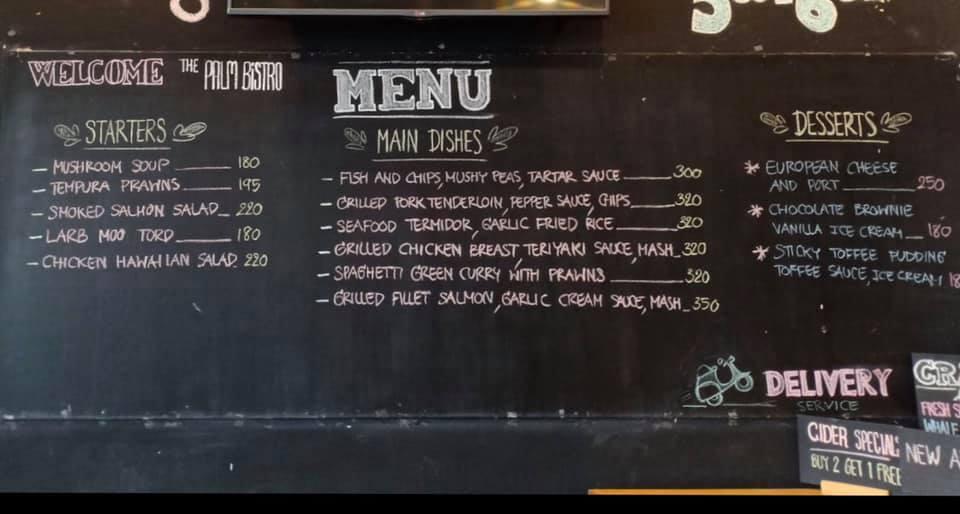 WELCOME THE PALM BISTRO
MENU
STARTERS
– MUSHROOM SOUP 180
– TEMPURA PRAWNS 195
– SMOKED SALMON SALAD 220
– LARB MOO TORD 180
– CHICKEN HAWAIIAN SALAD 220
MAIN DISHES
– FISH AND CHIPS, MUSHY PEAS, TARTAR SAUCE 300
– GRILLED PORK TENDERLOIN, PEPPER SAUCE, CHIPS 320
– SEAFOOD TERMIDOR, GARLIC FRIED RICE 320
– GRILLED CHICKEN BREAST TERIYAKI SAUCE, MASH 320
– SPAGHETTI GREEN CURRY WITH PRAWNS 320
– GRILLED FILLET SALMON, GARLIC CREAM SAUCE, MASH 350
DESSERTS
* EUROPEAN CHEESE
AND PORT 250
* CHOCOLATE BROWNIE
VANILLA ICE CREAM 180
* STICKY TOFFEE PUDDING
TOFFEE SAUCE, ICE CREAM
DELIVERY
SERVICE
CIDER SPECIAL
BUY 2 GET 1 FREE
FRESH
NEW